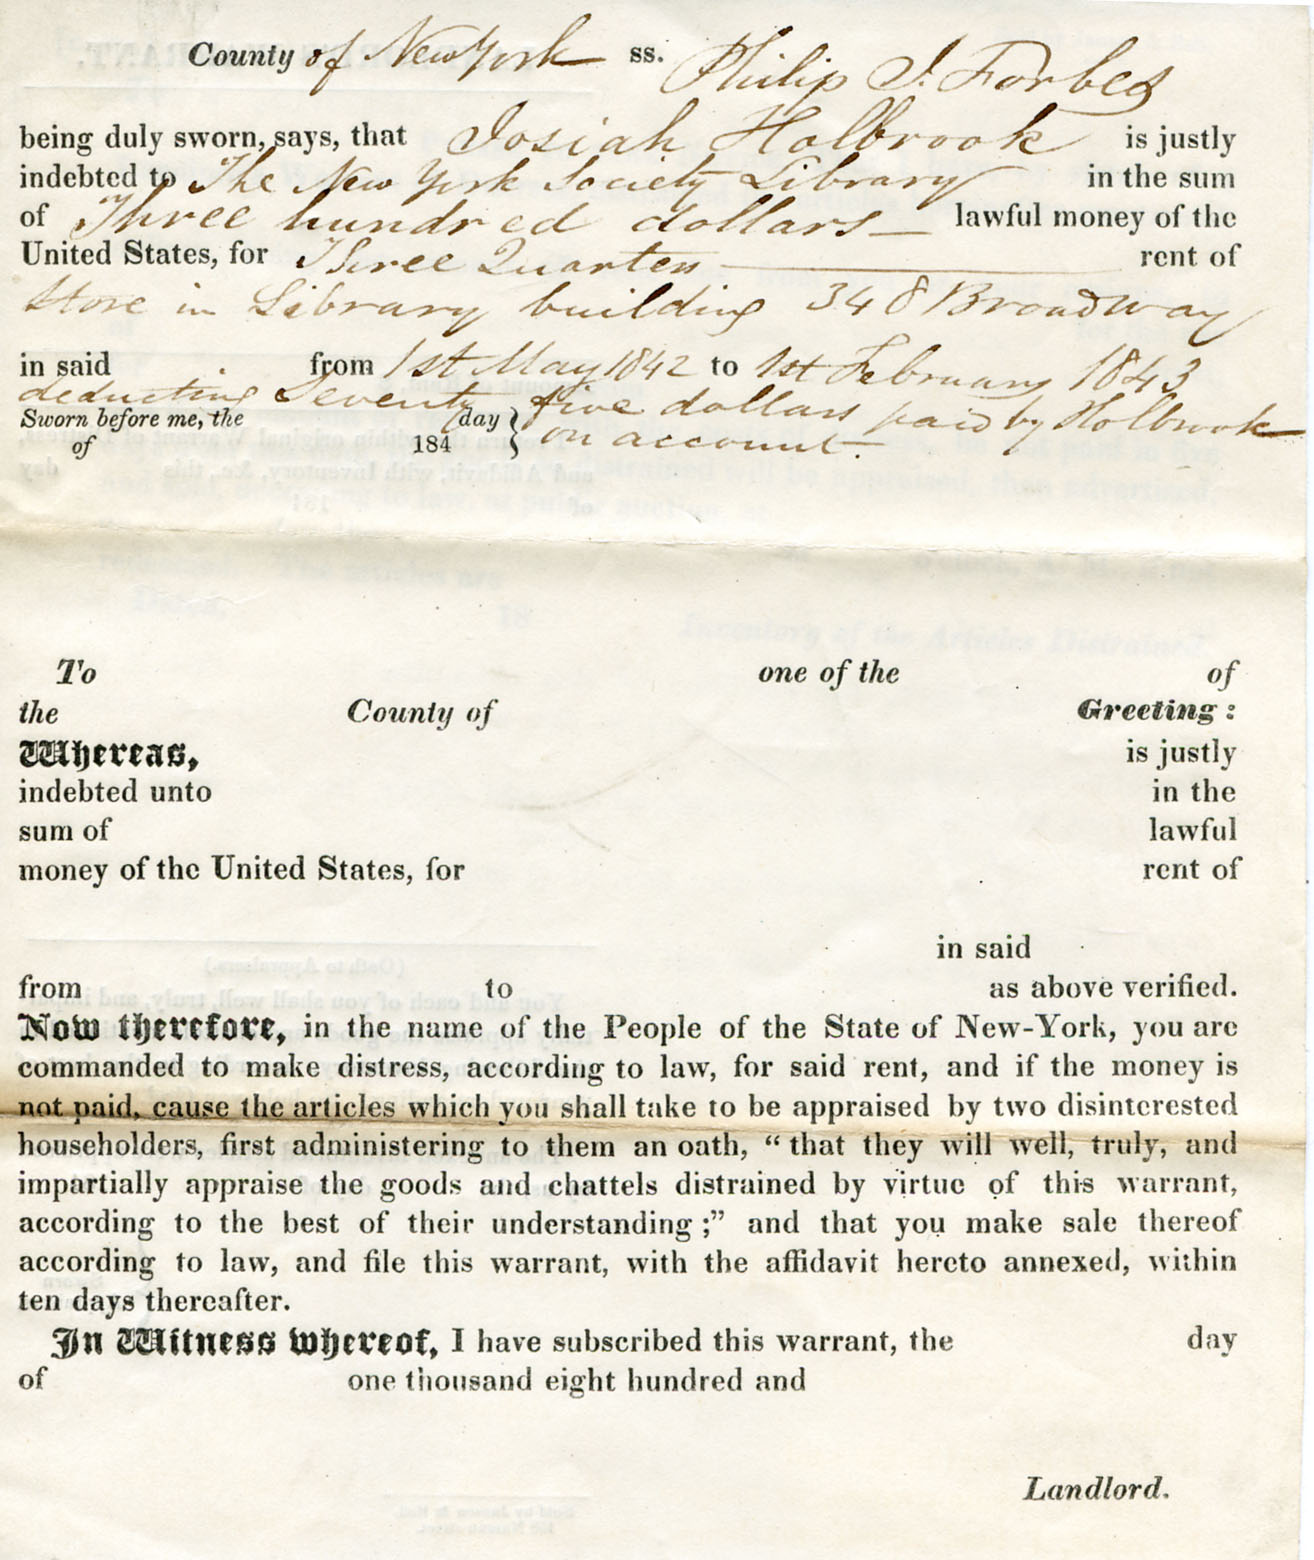 County of New York ss. Philip J. Forbes
being duly sworn, says, that Josiah Holbrook is justly
indebted to The New York Society Library in the sum
of Three hundred dollars — lawful money of the
United States, for Three Quarters — rent of
Store in Library building 348 Broadway
in said from 1st May 1842 to 1st February 1843
deducting Seventy five dollars paid by Holbrook
on account.
Sworn before me, the day
of 184
To one of the of
the County of Greeting:
Whereas, is justly
indebted unto in the
sum of lawful
money of the United States, for rent of
in said
from to as above verified.
Now therefore, in the name of the People of the State of New-York, you are
commanded to make distress, according to law, for said rent, and if the money is
not paid, cause the articles which you shall take to be appraised by two disinterested
householders, first administering to them an oath, “ that they will well, truly, and
impartially appraise the goods and chattels distrained by virtue of this warrant,
according to the best of their understanding ;” and that you make sale thereof
according to law, and file this warrant, with the affidavit hereto annexed, within
ten days thereafter.
In Witness whereof, I have subscribed this warrant, the day
of one thousand eight hundred and
Landlord.